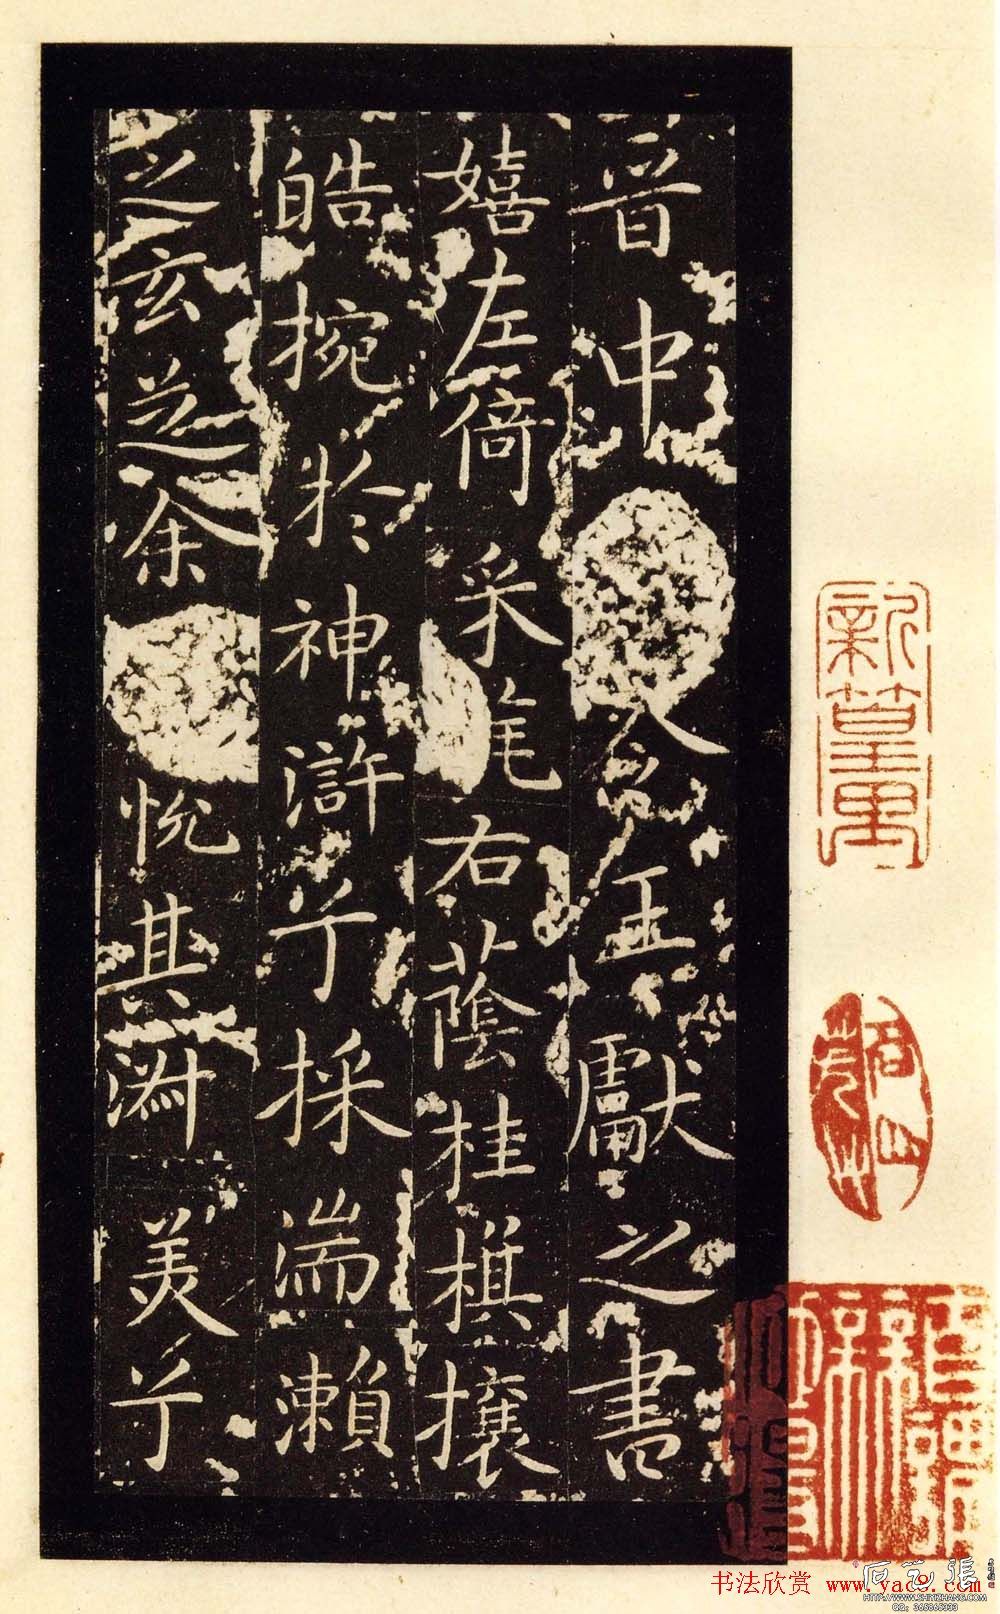 晋中令王獻之書
嬉左倚采旄右蔭桂棋攘
皓捥於神滸兮採湍瀨
之玄芝余悅其淑美兮
书法欣赏 www.yac8.com
HTTP://WWW.SHIYIZHANG.COM